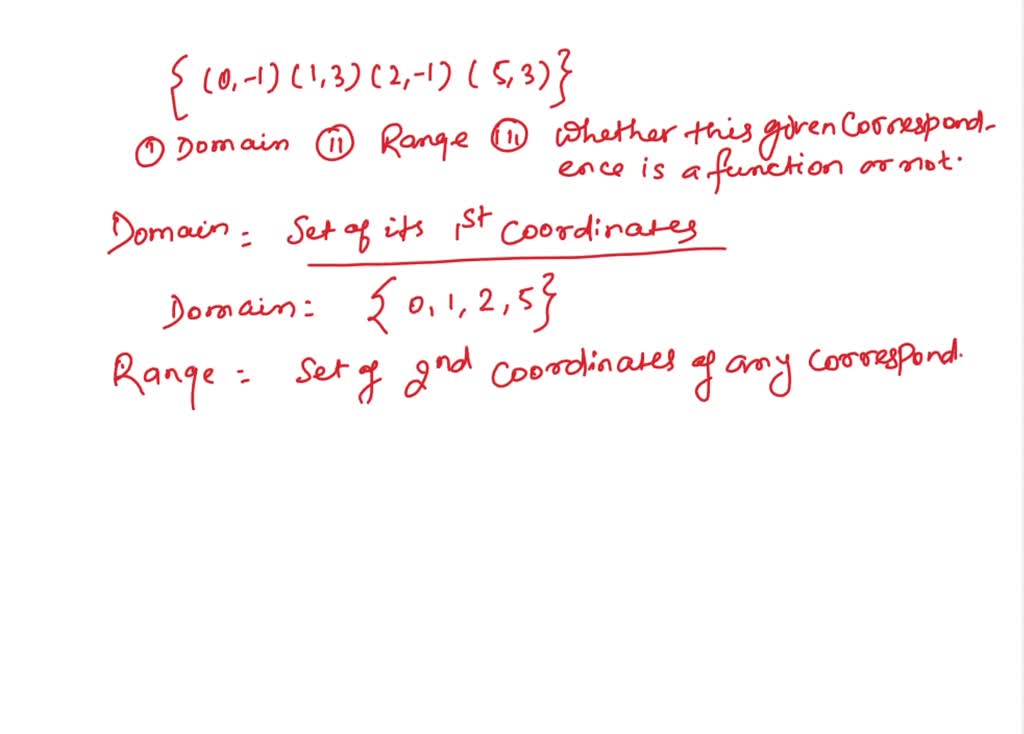 { (0,-1) (1,3) (2,-1) ( 5,3)}
(i) Domain (ii) Range (iii) Whether this given Correspond-
ence is a function or not.
Domain = Set of its 1st Coordinates
Domain = { 0, 1, 2, 5}
Range = Set of 2nd coordinates of any correspond.